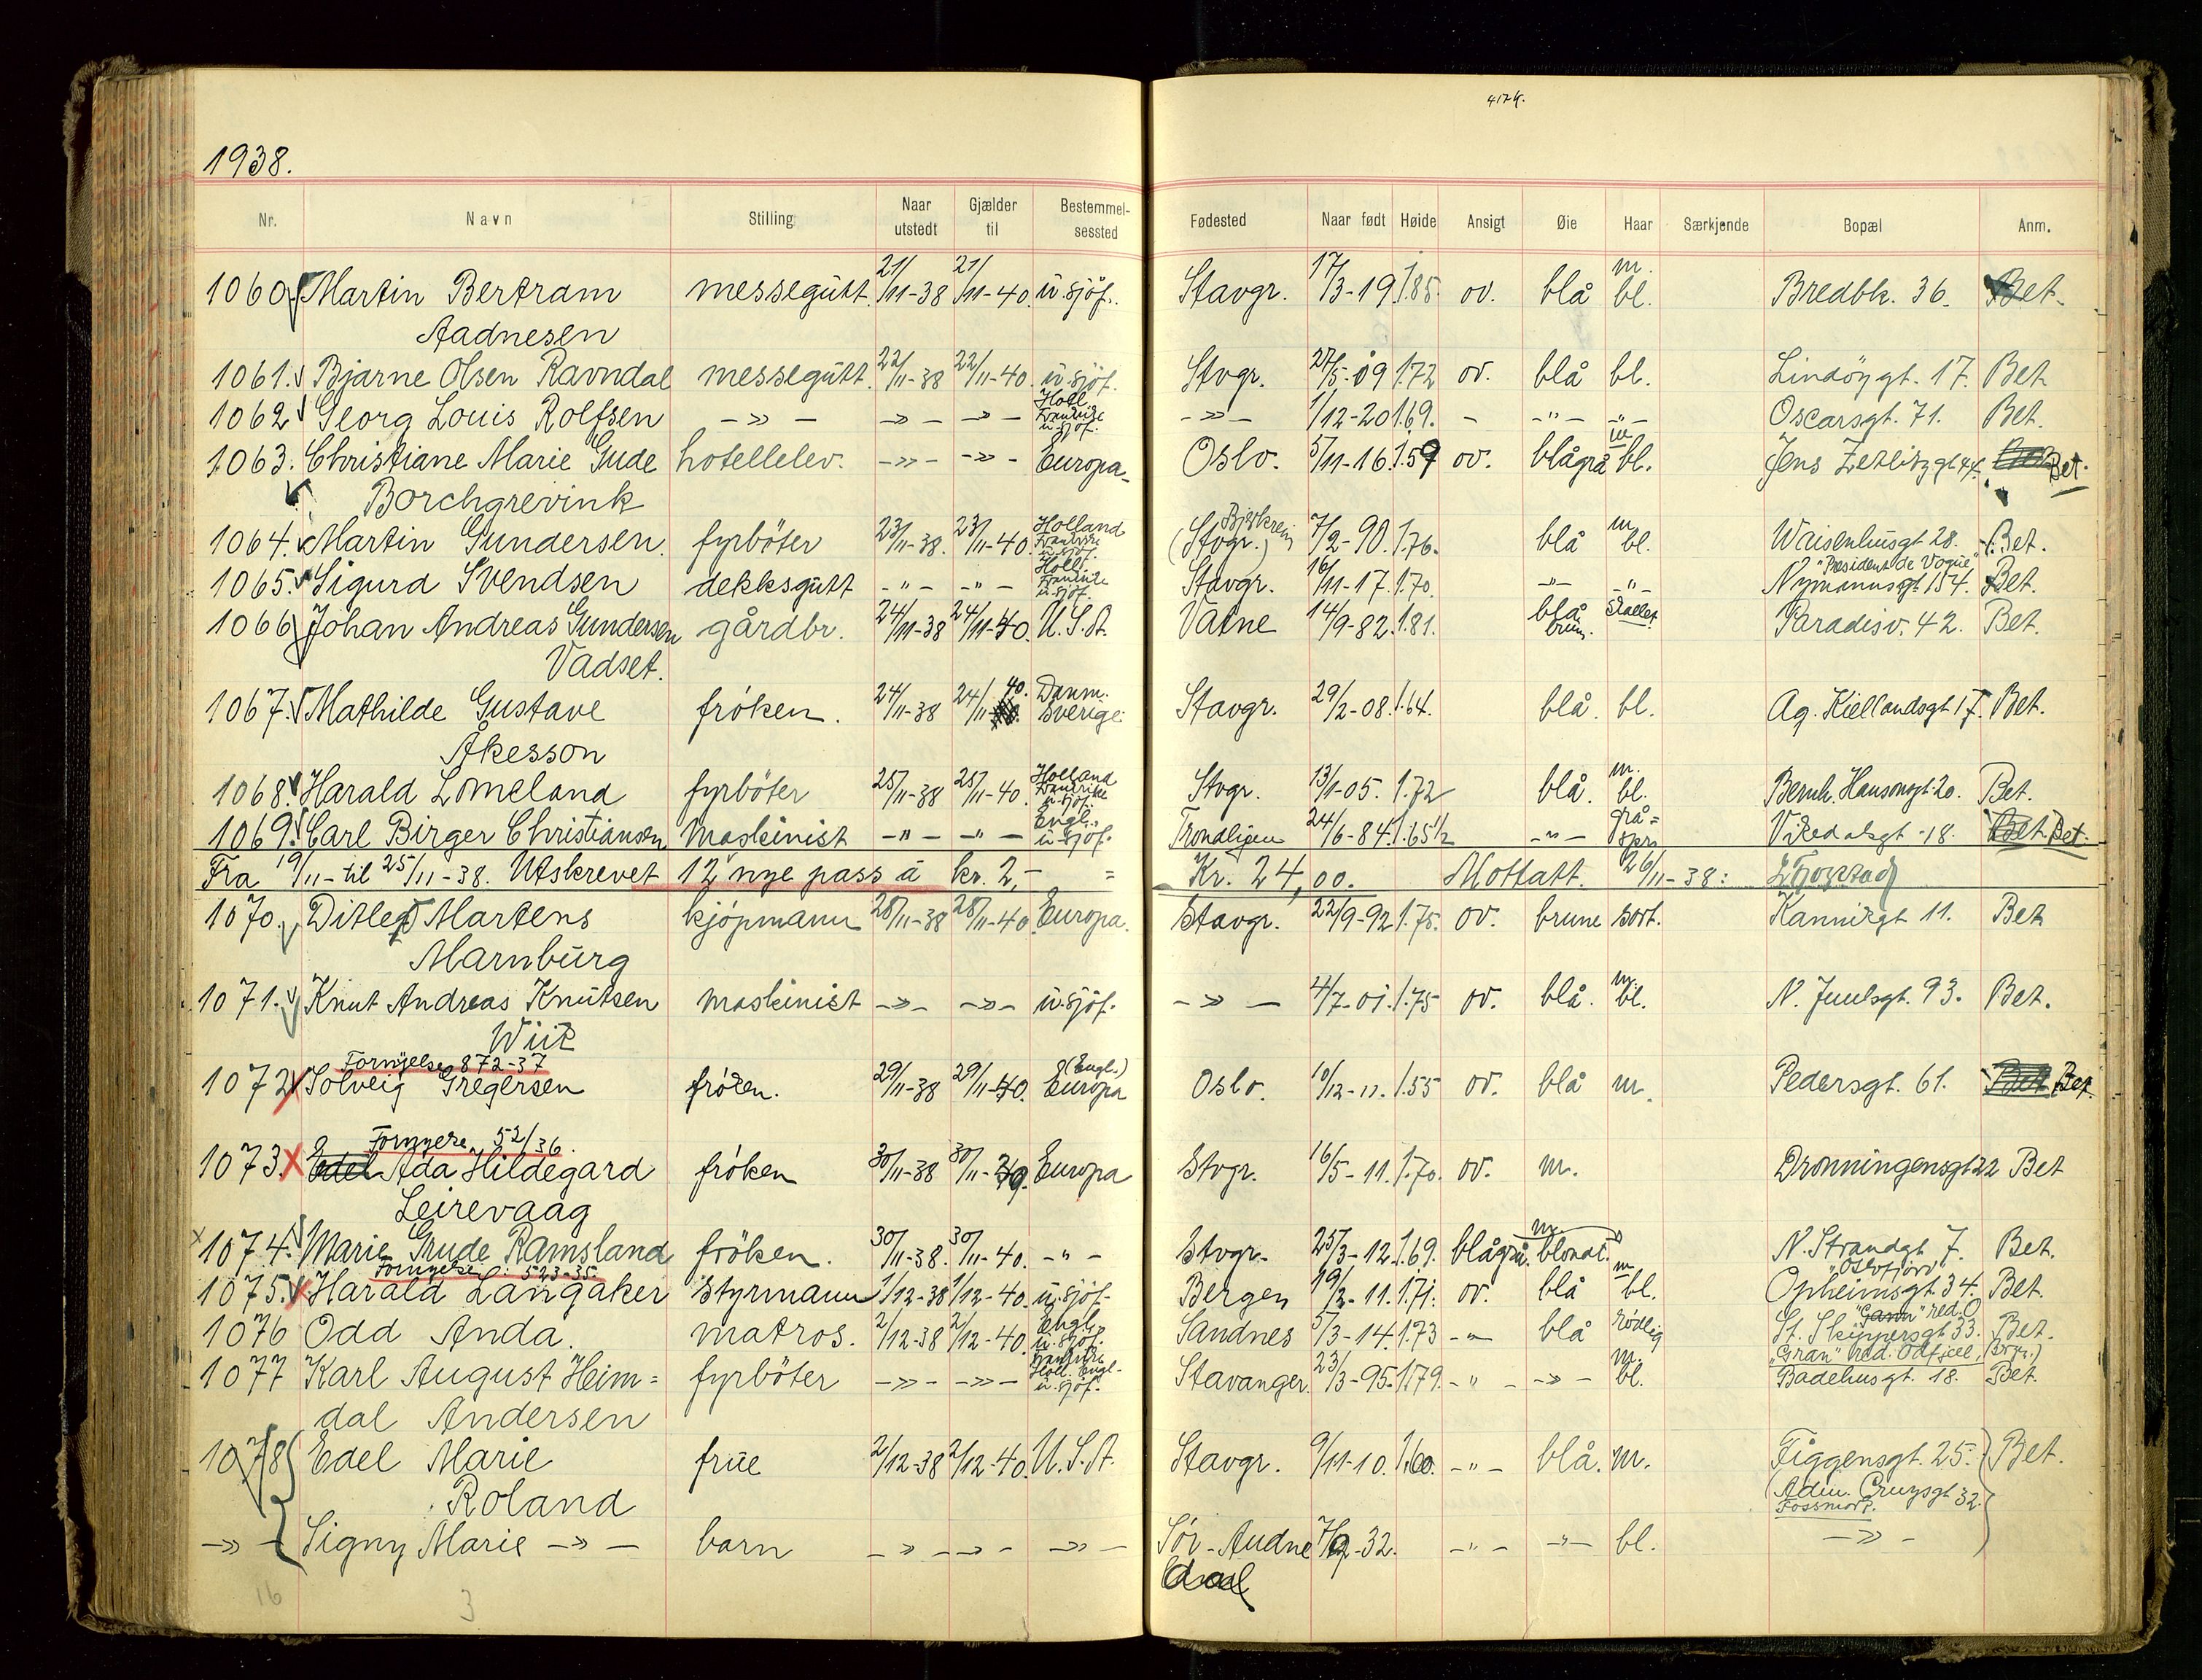 417 k.
1938.
Nr. Navn Stilling Naar utstedt Gjælder til Bestemmelsessted Fødested Naar født Høide Ansigt Øie Haar Særkjende Bopæl Anm.
1060 Martin Bertram messegutt. 21/11-38 21/11-40. u.sjöf. Stavgr. 17/3-19 1.85. ov. blå m. bl. Bredbk. 36. Bet.
Aadnesen
1061. Bjarne Olsen Ravndal messegutt. 22/11-38 22/11-40. u.sjöf. Stvgr. 27/5-09 1.72 ov. blå bl. Lindöygt. 17. Bet.
1062 Georg Louis Rolfsen -»- -»- -»- Holl. Frankrike u.sjöf. -»- 1/12-20 1.69. - -"- -"- Oscarsgt. 71. Bet.
1063. Christiane Marie Gude hotellelev. -»- -»- Europa Oslo. 5/11-16 1.59 ov. blågrå m bl. Jens Zetlitzgt 44. Bet.
Borchgrevink
1064. Martin Gundersen. fyrböter 23/11-38. 23/11-40. Holland Frankrike u.sjöf. (Stvgr.) Bjerkreim 7/2-90. 1.76. blå m bl. Waisenhusgt 28. Bet.
1065. Sigurd Svendsen dekksgutt -"- -"- Holl. Frankrike u.sjöf. Stavgr. 16/11-17. 1.70. -"- -"- "President de Vogue" Nymannsgt 154. Bet.
1066 Johan Andreas Gundersen gårdbr. 24/11-38 24/11-40. U.S.A. Vatne 14/9-82. 1.81. blå brun. skallet Paradisv. 42. Bet.
Vadset.
1067. Mathilde Gustave fröken. 24/11-38 24/11 40. Danm. Sverige. Stavgr. 29/2-08. 1.64. blå. bl. Ag. Kiellandsgt 17. Bet.
Åkesson
1068. Harald Lomeland fyrböter 25/11-38 25/11-40. Holland Frankrike u.sjöf. Stvgr. 13/1-05. 1.72 blå. m. bl. Bernh. Hansonsgt. 20. Bet.
1069. Carl Birger Christiansen maskinist -"- -"- Engl. u.sjöf. 24/6-84. 1.65½ -"- grå= Vikedalsgt -18. Bet.
Fra 19/11- til 25/11-38. Utskrevet 12 nye pass á kr. 2,- = Kr. 24,00. Mottatt. 26/11-38:
1070. Ditlef Martens kjöpmann 28/11-38 28/11-40. Europa. Stavgr. 22/9-92 1.75. ov. brune sort. Kannikgt 11. Bet.
Marnburg
1071. Knut Andreas Knutsen maskinist -»- -»- u.sjöf. -»- 4/7-01. 1.75 ov. blå. m. bl. N. Juulsgt. 93. Bet.
Wiik
Fornyelse 872-37
1072 Solveig Gregersen fröken. 29/11-38 29/11-40. (Engl.) Europa Oslo. 10/12-11. 1.55 ov. blå m. Pedersgt. 61. Bet.
Fornyere 52/36.
1073. Edel Ada Hildegard fröken 30/11-38 30/11-39. Europa Stvgr. 16/5-11. 1.70. ov. m. Dronningensgt 22 Bet
Leirevaag
1074. Marie Grude Ramsland fröken. 30/11-38. 30/11-40. -"- Stvgr. 25/3-12. 1.69. blågrå. m blond. N. Strandgt 7. Bet.
Fornyelse: 523-35. "Oslofjord"
1075. Harald Langaker styrmann 1/12-38 1/12-40. u.sjöf. Bergen 19/2-11. 1.71. ov. blå m bl. Opheimsgt 34. Bet.
1076 Odd Anda. matros. 2/12-38 2/12-40. Engl. u.sjöf. Sandnes 5/3-14. 1.73 -"- blå rödlig St. Skippersgt 33. Bet.
1077 Karl August Heim= fyrböter -»- -»- Frankrike Holl. Engl. u.sjöf. Stavanger 23/3-95. 1.79. -"- -»- m. bl. "Gran" red. Odfjell, Badehusgt. 18. Bet.
dal Andersen
1078 Edel Marie frue 2/12-38 2/12-40. U.S.A. Stavgr. 9/11-10. 1.60. -"- blå. m. Figgensgt. 25. Bet.
Roland (Adm. Cruysgt 32.)
-»- Signy Marie -»- barn -»- -»- -»- Sör-Audne 7/2-32. -"- -"- bl. -»-
dal
16 3